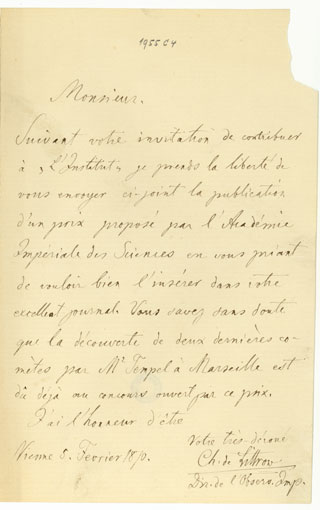 1955 C4
Monsieur.
Suivant votre invitation de contribuer
à „L'Institut“ je prends la liberté de
vous envoyer ci-joint la publication
d'un prix proposé par l'Académie
Impériale des Sciences en vous priant
de vouloir bien l'insérer dans votre
excellent journal. Vous savez sans doute
que la découverte de deux dernières co-
mètes par Mr Tempel à Marseille est
dû déjà au concours ouvert par ce prix.
J'ai l'honneur d'être
Votre très-dévoué
Vienne 8. Fevrier
Ch. de Littrow
Dir. de l'Observ. Imp.